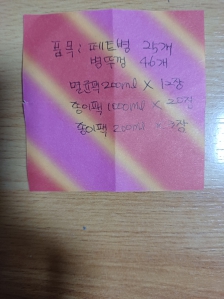 품목: 페트병 25개
병뚜껑 46개
멸균팩 200ml X 12장
종이팩 1000ml X 28장
종이팩 200ml X 2장